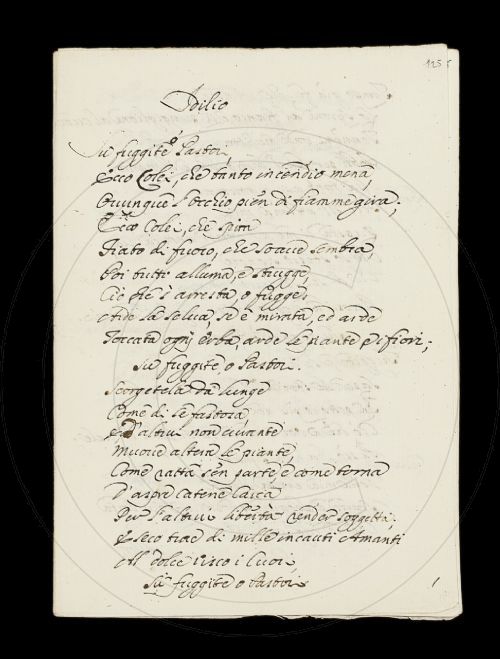 125
Idilio
Su fuggite o Pastori,
Ecco Colei, che tanto incendio mena,
Ovunque l'occhio pien di fiamme gira;
Ecco Colei, che spira
Fiato di fuoco, che soave sembra,
Poi tutti alluma, e strugge,
Ciò che s'arresta, o fugge;
Arde la selva, se è mirata, ed arde
Toccata ogni erba, arde le piante e i fiori;
Su fuggite, o Pastori.
Scorgetela da lunge
Come di se fastosa,
E d'altrui non curante
Muove altera le piante,
Come ratta sen parte, e come torna
D'aspre catene carca
Per l'altrui libertà render soggetta,
E seco trae di mille incauti Amanti
Al dolce visco i Cuori,
Su fuggite o Pastori